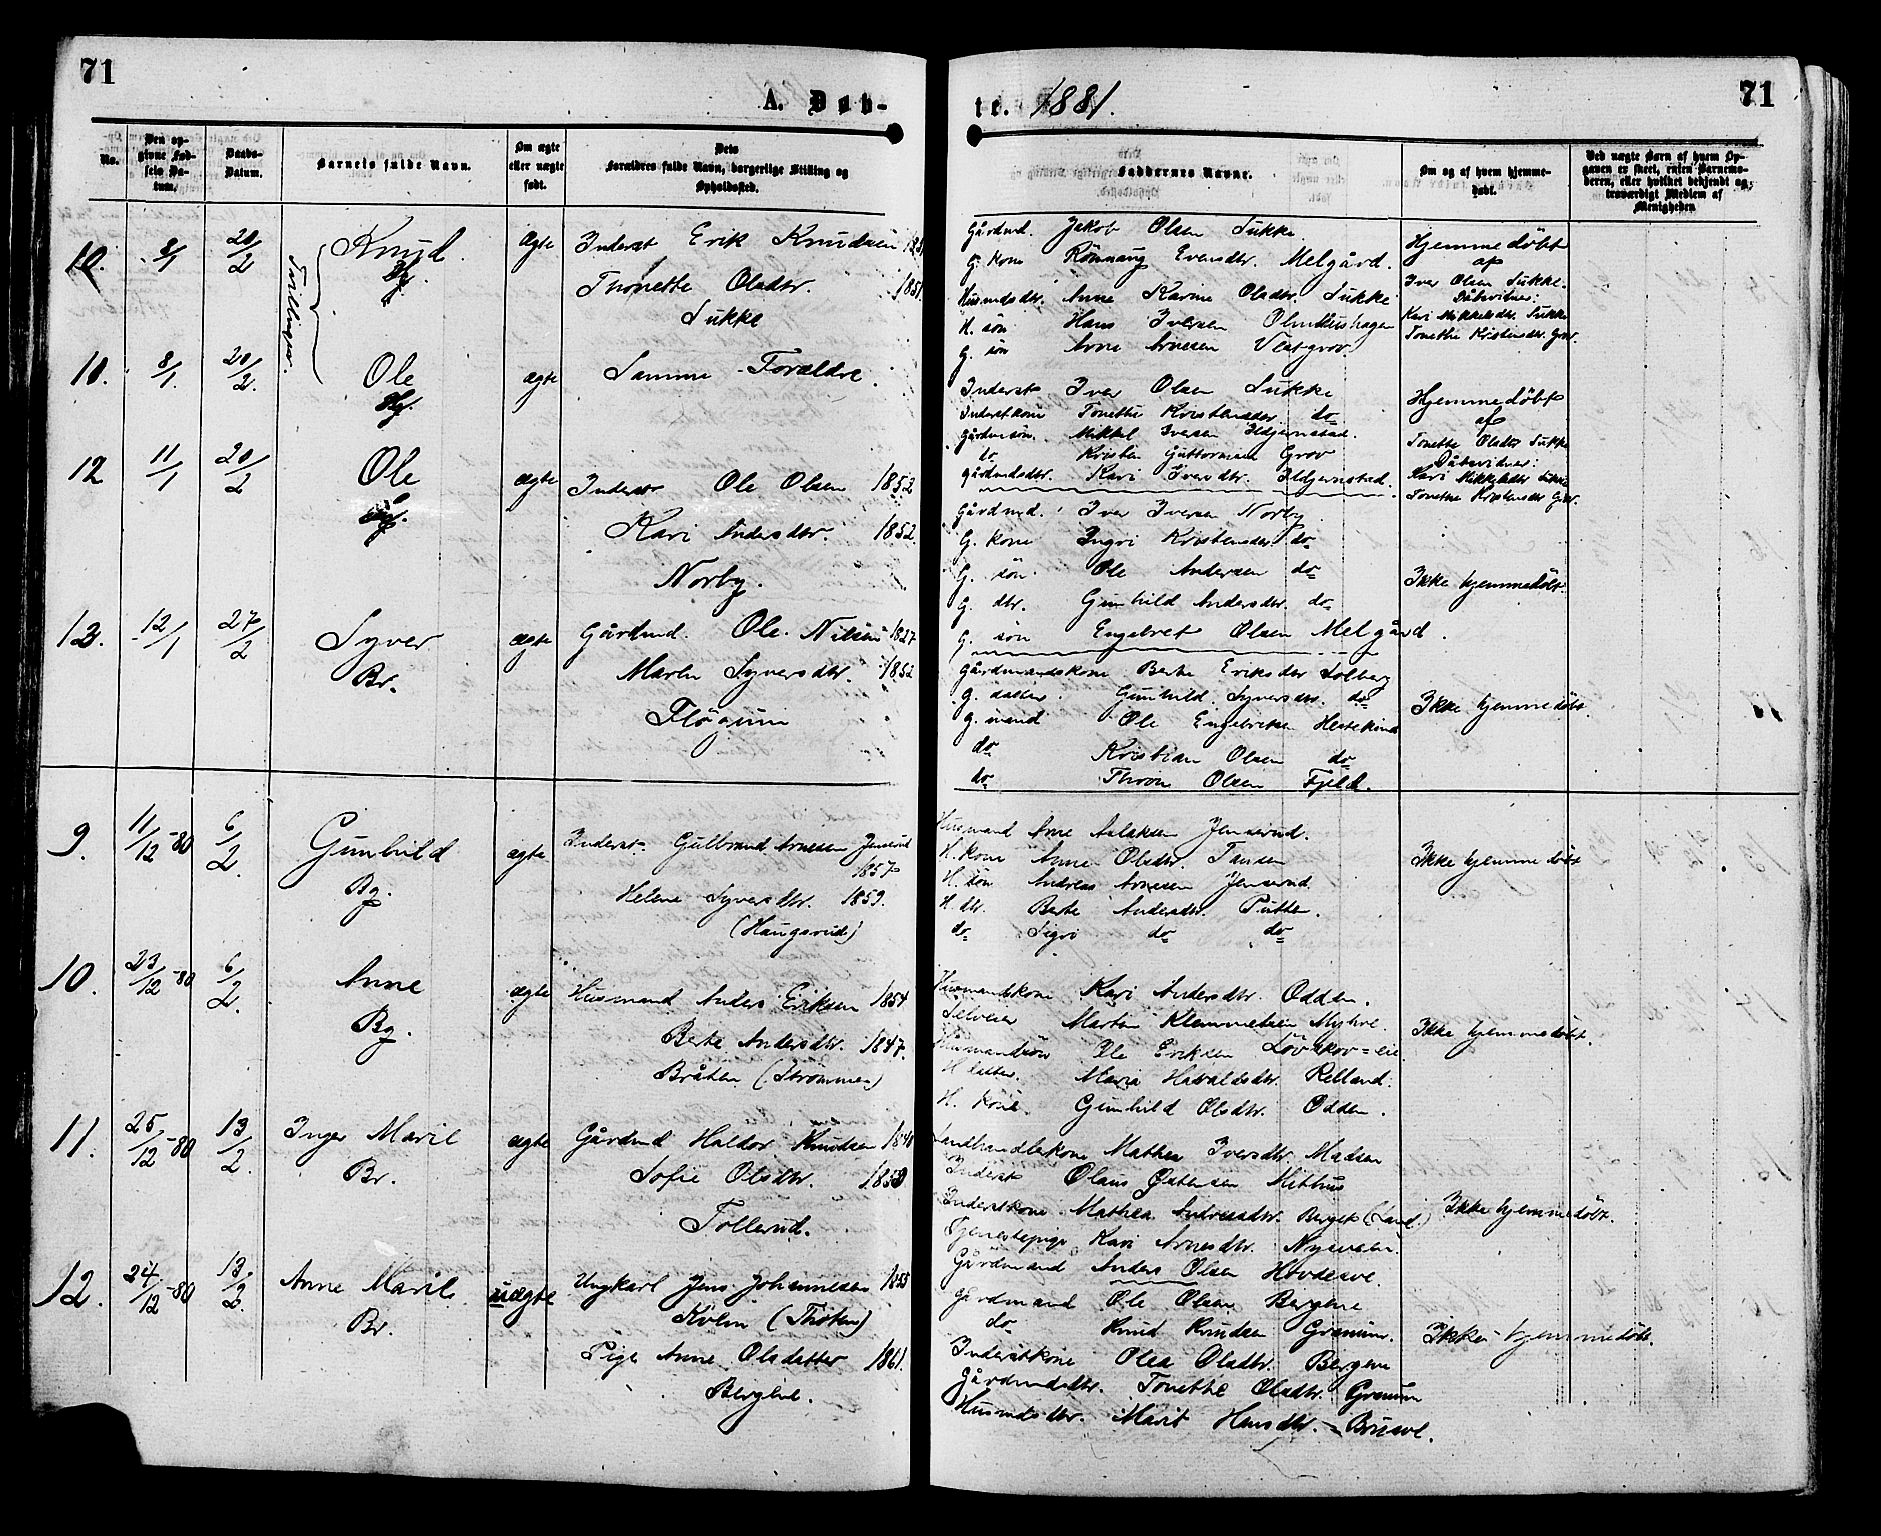 71
A. Døb-
No.
Den op-
givne Fød-
sels Da-
tum.
Daabs-
Datum.
Barnets fulde Navn.
Om ægte
eller uægte
født.
Dets
Forældres fulde Navn, borgerlige Stilling og
Opholdssted.
10.
8/1
20/2
Knud
Hg.
Tvillinger.
ægte
Inderst Erik Knudsen
Thonette Olsdtr. 1851
Sukke
11.
8/1
20/2.
Ole
Hg.
ægte
Samme Forældre.
12
11/1
20/2
Ole
ægte
Inderst Ole Olsen 1852
Kari Andersdtr. 1852.
Norby.
13.
12/1
27/2
Syver
Br.
ægte
Gårdmd. Ole Nilsen 1827
Marte Syversdtr. 1852
Fløgum
9.
11/12-80
6/2.
Gunhild
Bg.
ægte
Inderst Gulbrand Arnesen Jenserud
1857
Helene Syversdtr. 1859.
(Haugsrud)
10.
23/12-80
6/2.
Anne
Bg.
ægte
Husmand Anders Eriksen 1854
Berte Andersdtr. 1847.
Bråten (Strømmen)
11.
25/12-80
13/2.
Inger Marie
Br.
ægte
Gårdmd Haldor Knudsen 1840
Sofie Olsdtr. 1853
Tollerud.
12.
24/12-80
13/2.
Anne Marie
Br.
uægte
Ungkarl Jens Johannesen
Kolin (Thoten)
Pige Anne Olsdatter 1861.
Bergene.
71
te. 1881.
Faddernes Navne.
Om og af hvem hjemme-
døbt.
Ved uægte Børn af hvem Op-
gaven er skeet, enten Barnemo-
deren, eller hvilket bekjendt og
troværdigt Medlem af
Menigheden
Gårdmd. Jakob Olsen Sukke
G. kone Rønnaug Eversdtr. Melgård.
Husmdsdtr. Anne Karine Olsdtr. Sukke
H. søn Hans Iversen
G. søn Arne Arnesen Vestgrov
Hjemmedøbt
af
Iver Olsen Sukke.
Dåbsvidner:
Kari Mikkelsdtr. Sukke
Tonethe Kristensdtr. Grov.
Inderst Iver Olsen Sukke
Inderstkone Tonethe Kristensdtr do
Gårdmsøn. Mikkel Iversen Hdjernstad.
do Kristen Guttormsen Grov
Gårdmdsdtr. Kari Iversdtr. Hdjernstad.
Hjemmedøbt
af
Tonette Olsdtr Sukke
Dåbsvidner:
Kari Mikkelsdtr. Sukke
Tonethe Kristensdtr. Grov.
Gårdmd. Iver Iversen Norby
G. kone Ingri Kristensdtr. do
G. søn Ole Andersen do
G. dtr. Gunhild Andersdtr. do
G. søn Engebret Olsen Melgård.
Ikke hjemmedøbt.
Gårdmandskone Berte Eriksdtr Solberg
G. datter. Gunhild Syversdtr. do
G. mand Ole Engebretsen Hestekind
do Kristian Olsen do
do Thron Olsen Fjeld.
Ikke hjemmedøbt.
Husmand Arne Aslaksen Jenserud.
H. kone Anne Olsdtr. Tansen
H. søn Andreas Arnesen Jenserud
H. dtr. Berte Andersdtr. Putten.
do Sigri do do
Ikke hjemmedøbt
Husmandskone Kari Andersdtr. Odden.
Selveier Martin Klemmetsen Myhre.
Husmandsøn Ole Eriksen Løvskov-eie.
H datter. Maria Haraldsdtr. Relland.
H. kone. Gunhild Olsdtr. Odden.
Ikke hjemmedøbt.
Landhandlerkone Mathea Iversdtr. Madsen
Inderst Olaus Østensen Mithus
Inderstkone Mathea Andreasdtr. Berget (Land)
Tjenestepige Kari Arnesdtr. Nyseveen.
Gårdmand Anders Olsen Hovdeave.
Ikke hjemmedøbt.
Gårdmand Ole Olsen Bergene
do Knud Knudsen Granum.
Inderstkone Olea Olsdtr. Bergene
Gårdmdsdtr. Tonette Olsdtr. Granum
Husmdsdtr. Marit Hansdtr. Brusve.
Ikke hjemmedøbt.